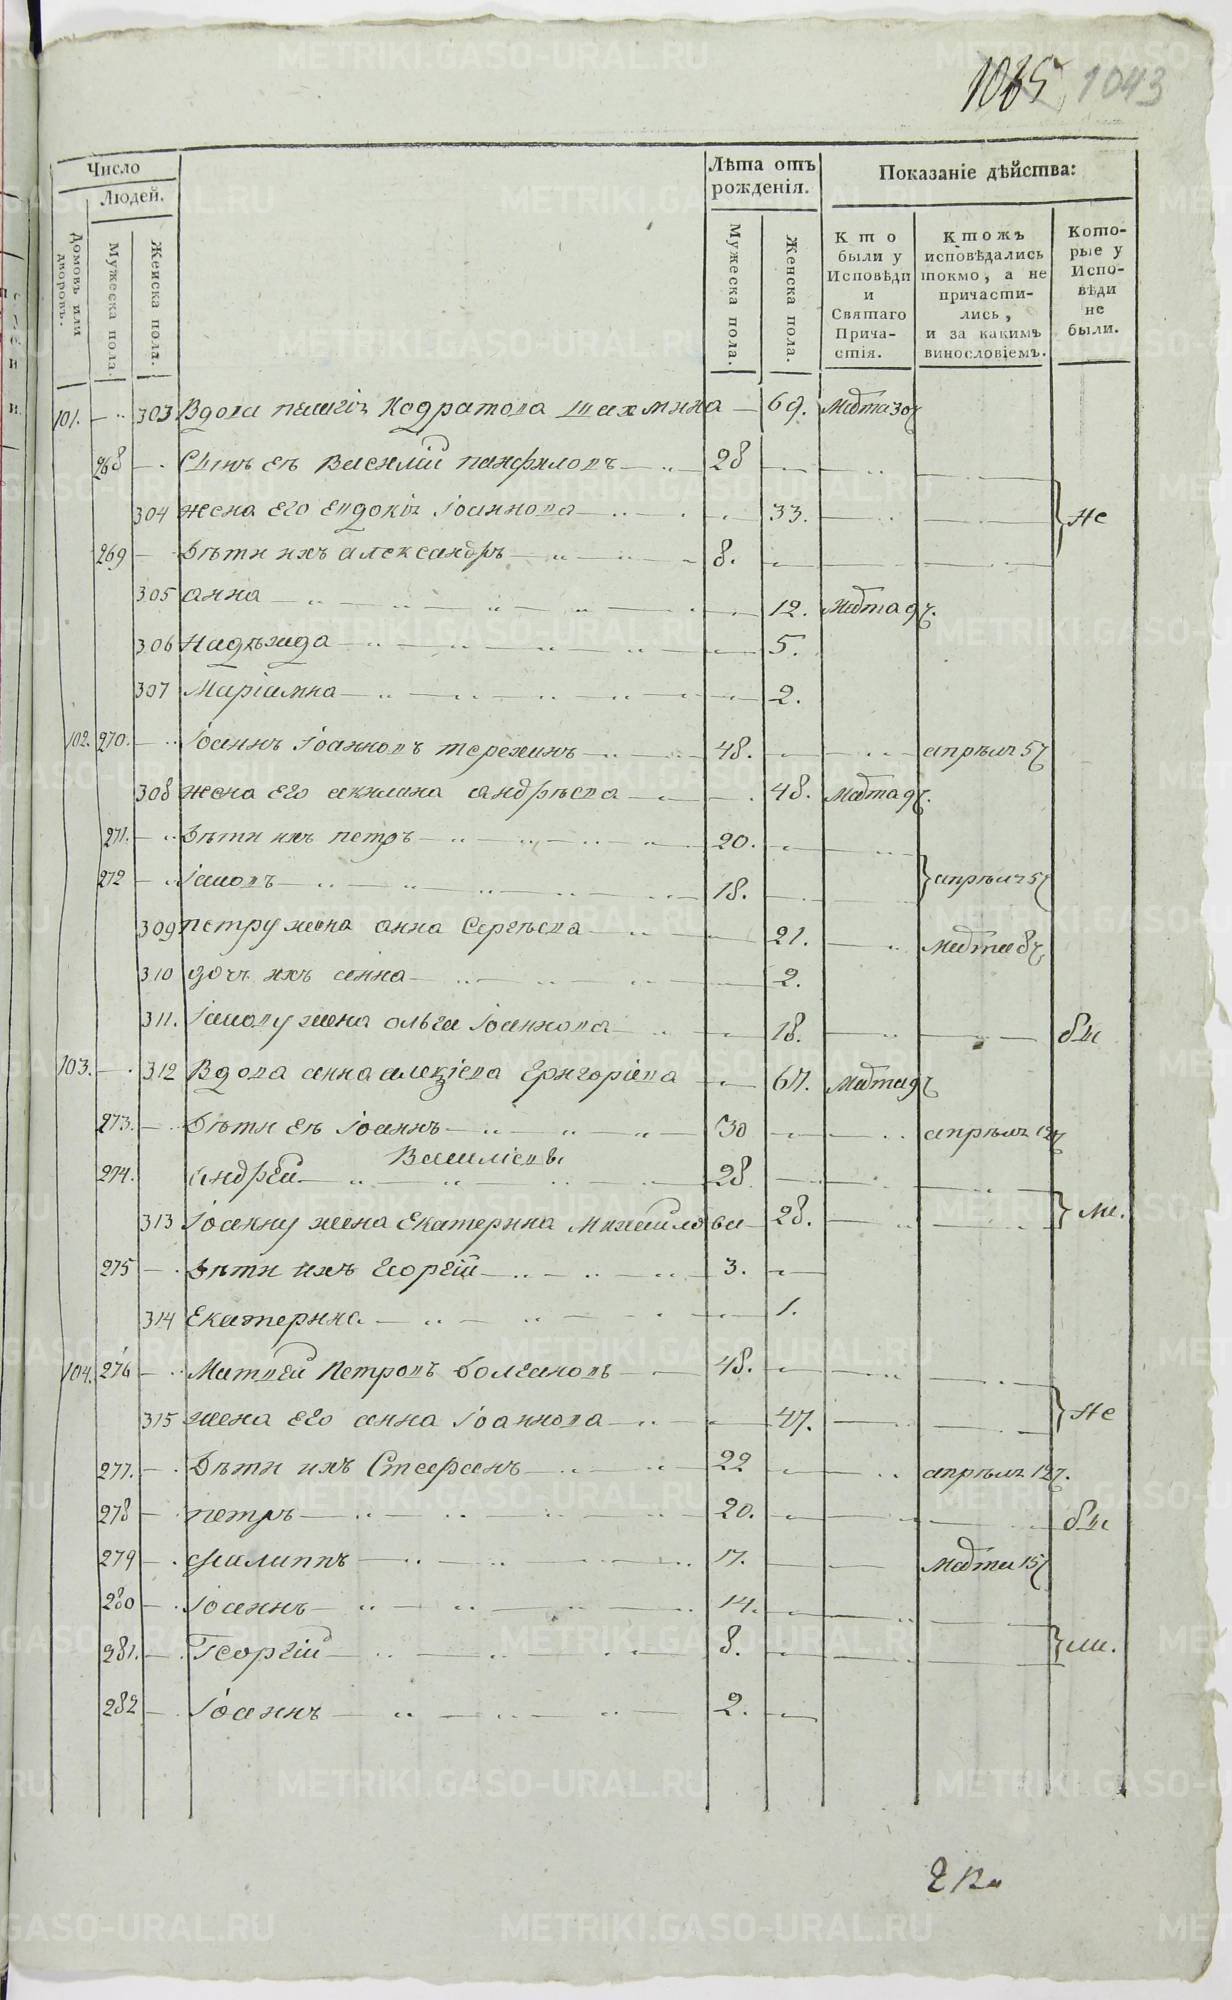 1035 1043
Число
Людей.
Домовъ или дворовъ.
Мужеска пола.
Женска пола.
Лѣта отъ рожденія.
Мужеска пола.
Женска пола.
Показаніе дѣйства:
Кто были у Исповѣди и Святаго Причастія.
Ктожъ исповѣдались токмо, а не причастились, и за какимъ винословіемъ.
Которые у Исповѣди не были.
101. 303 Вдова Кодратова Шахмина 69. Марта 30
268 Сынъ еѣ Василій панфиловъ 28
304 жена его Евдокія Іоаннова 33. Не
269 Дѣти ихъ александръ 8.
305 анна 12. Марта 9
306 Надѣжда 5.
307 Маріамна 2.
102. 270. Іоаннъ Іоанновъ 48. апрѣля 5
308 жена его акилина андрѣева 48. Марта 9
271. Дѣти ихъ петръ 20.
272 Іаковъ 18. апрѣля 5
309 петру жена анна Сергѣева 21. Марта 8
310 дочь ихъ анна 2.
311. Іакову жена ольга Іоаннова 18. бы
103. 312 Вдова анна алекѣіева Григоріева 67. Марта 9
273. Дѣти еѣ Іоаннъ 30 апрѣля 12
Василіевы
274. андрей 28
313 Іоанну жена Екатерина михайлова 28. ли.
275 Дѣти ихъ Георгій 3.
314 Екатерина 1.
104. 276 Матвей Петровъ Болгановъ 48.
315 жена его анна Іоаннова 47. Не
277. Дѣти ихъ Стефанъ 22 апрѣля 12
278 петръ 20. бы
279 филиппъ 17. Марта 15
280 Іоаннъ 14.
281. Георгій 8. ли.
282 Іоаннъ 2.
METRIKI.GASO-URAL.RU